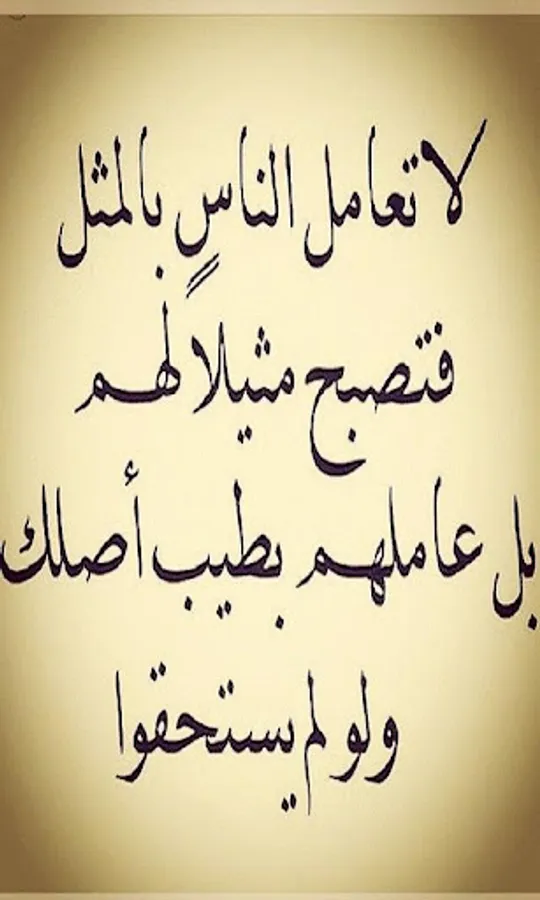 لا تعامل الناس بالمثل
فتصبح مثيلاً لهم
بل عاملهم بطيب أصلك
ولو لم يستحقوا